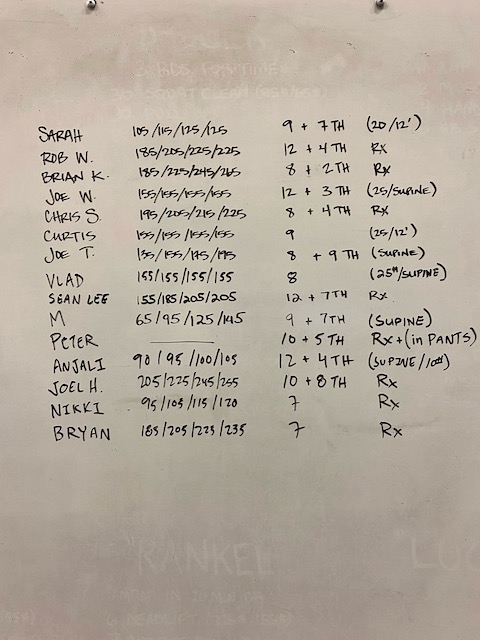 SARAH 105/115/125/125 9 + 7 TH (20/12')
ROB W. 185/205/225/225 12 + 4 TH Rx
BRIAN K. 185/225/245/265 8 + 2 TH Rx
JOE W. 155/155/155/155 12 + 3 TH (25/SUPINE)
CHRIS S. 195/205/215/225 8 + 4 TH Rx
CURTIS 155/155/155/155 9 (25/12')
JOE T. 155/155/195/195 8 + 9 TH (SUPINE)
VLAD 155/155/155/155 8 (25#/SUPINE)
SEAN LEE 155/185/205/205 12 + 7TH Rx
M 65/95/125/145 9 + 7TH (SUPINE)
PETER 10 + 5 TH Rx+(in PANTS)
ANJALI 90/95/100/105 12 + 4TH (SUPINE/10#)
JOEL H. 205/225/245/255 10 + 8 TH Rx
NIKKI 95/105/115/120 7 Rx
BRYAN 185/205/225/235 7 Rx
"RANKEL
LUC